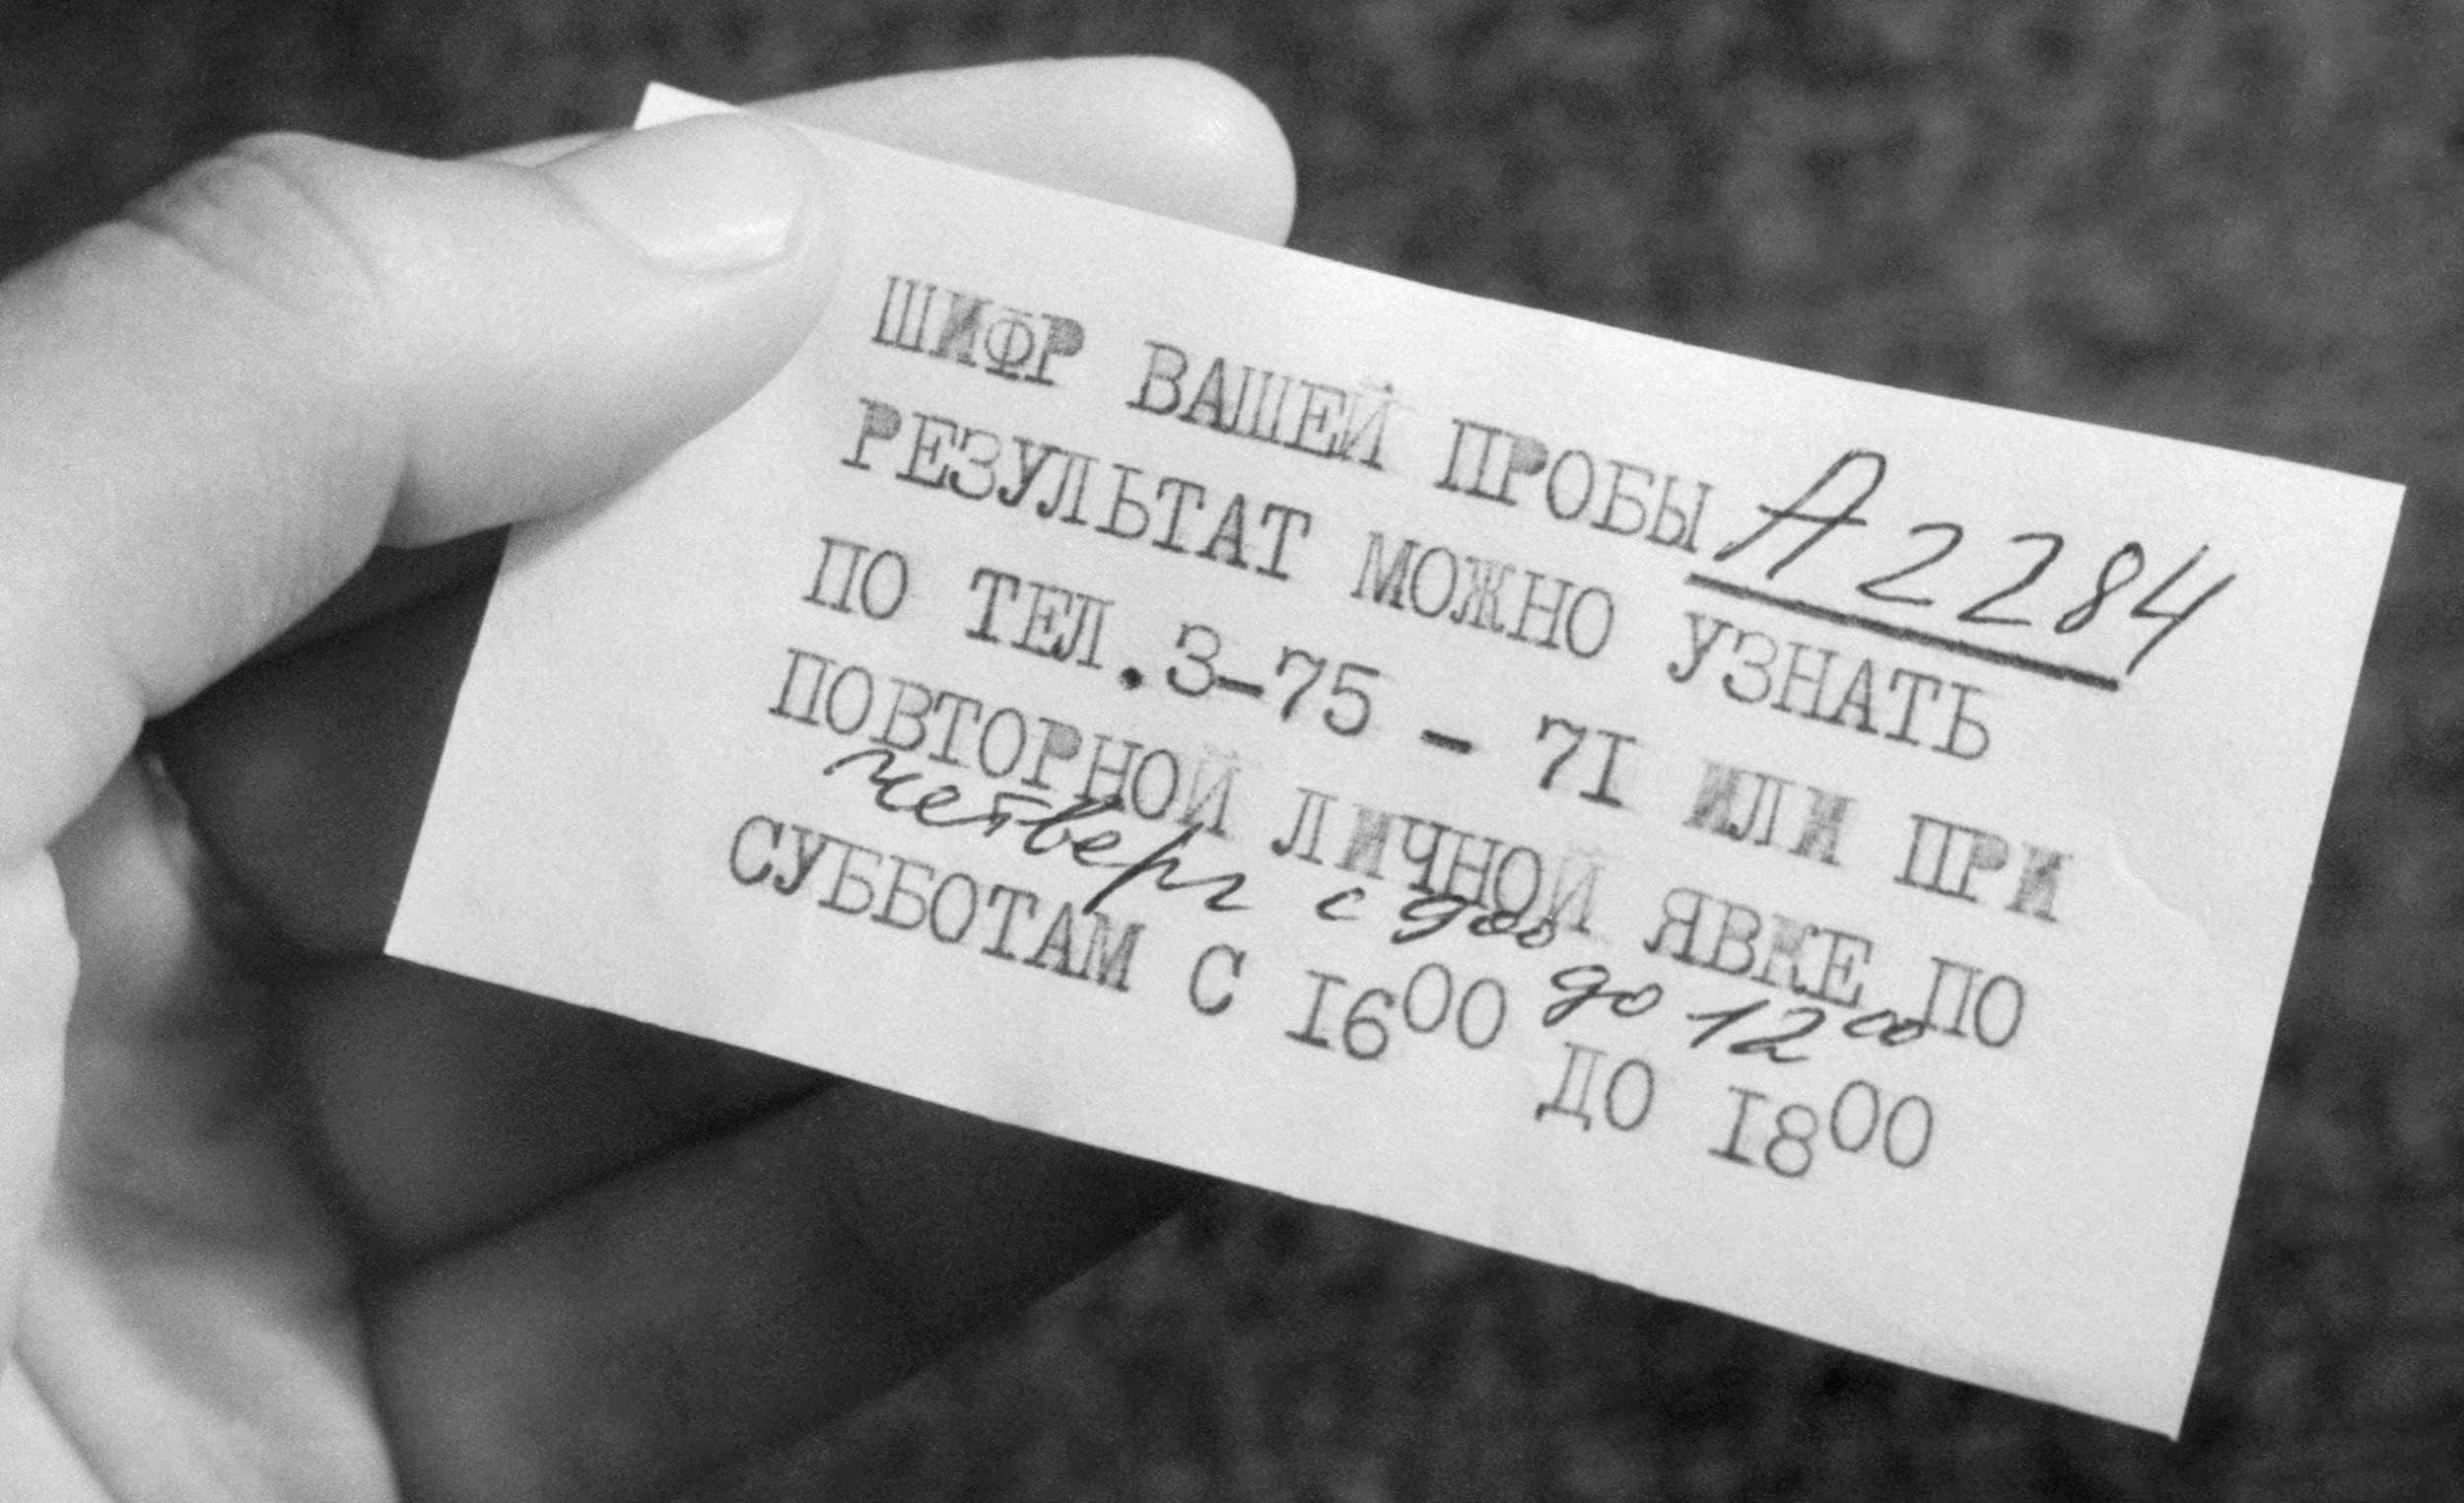 ШИФР ВАШЕЙ ПРОБЫ А2284
РЕЗУЛЬТАТ МОЖНО УЗНАТЬ
ПО ТЕЛ.3-75 - 7I ИЛИ ПРИ
ПОВТОРНОЙ ЛИЧНОЙ ЯВКЕ ПО
четверг с 9⁰⁰ до 12⁰⁰
СУББОТАМ С I6⁰⁰ ДО I8⁰⁰